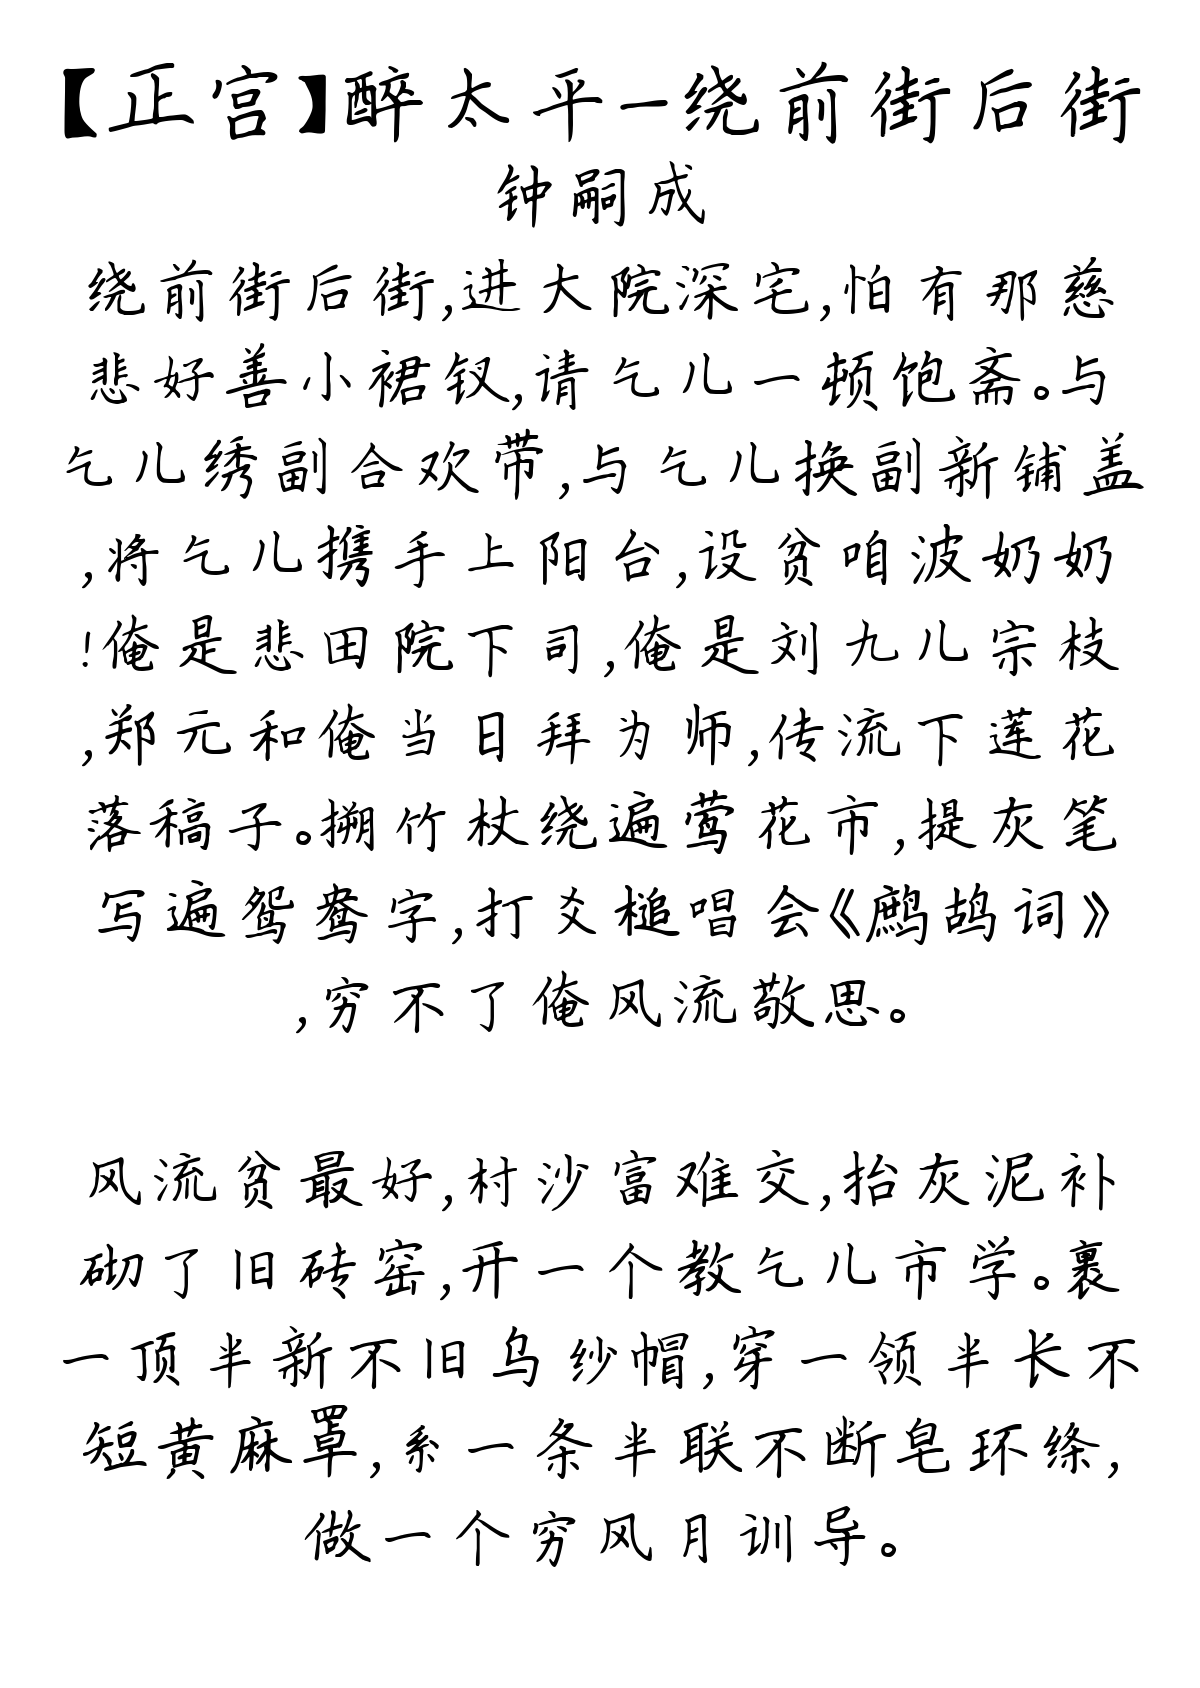 【正宫】醉太平-绕前街后街
钟嗣成
绕前街后街,进大院深宅,怕有那慈
悲好善小裙钗,请乞儿一顿饱斋。与
乞儿绣副合欢带,与乞儿换副新铺盖
,将乞儿携手上阳台,设贫咱波奶奶
!俺是悲田院下司,俺是刘九儿宗枝
,郑元和俺当日拜为师,传流下莲花
落稿子。搠竹杖绕遍莺花市,提灰笔
写遍鸳鸯字,打爻槌唱会《鹧鸪词》
,穷不了俺风流敬思。
风流贫最好,村沙富难交,抬灰泥补
砌了旧砖窑,开一个教乞儿市学。裹
一顶半新不旧乌纱帽,穿一领半长不
短黄麻罩,系一条半联不断皂环绦,
做一个穷风月训导。